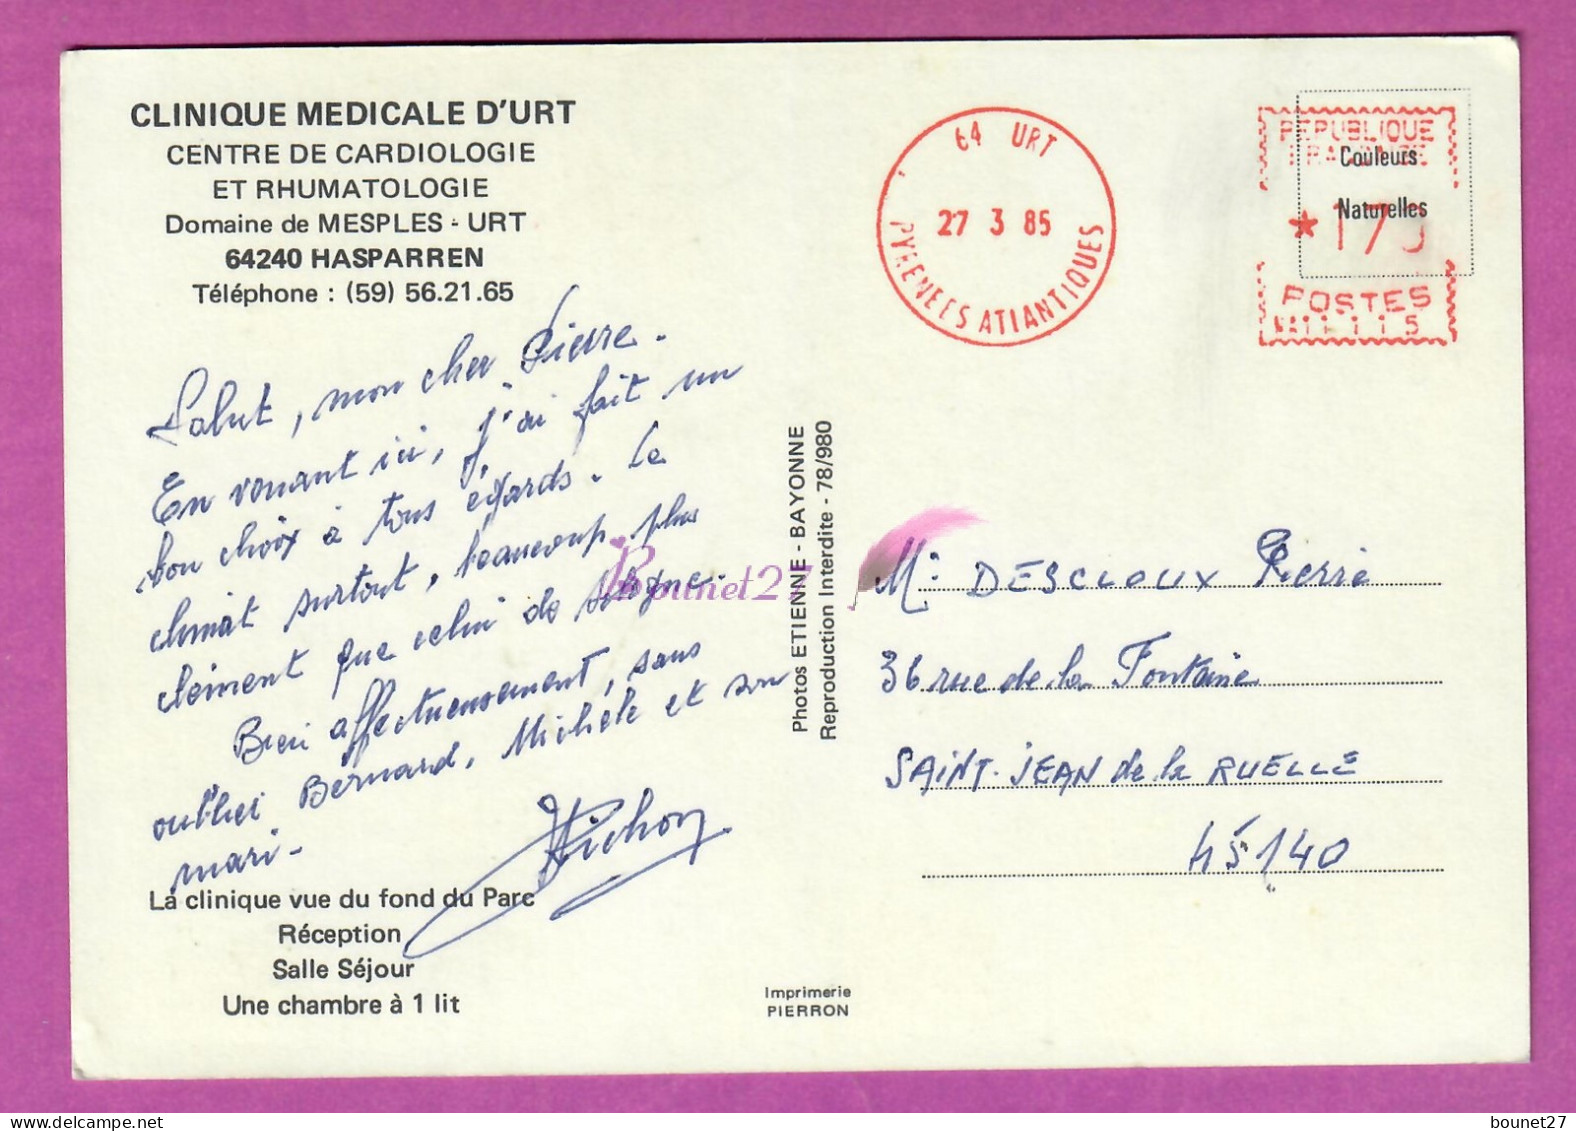 CLINIQUE MEDICALE D'URT
CENTRE DE CARDIOLOGIE
ET RHUMATOLOGIE
Domaine de MESPLES - URT
64240 HASPARREN
Téléphone : (59) 56.21.65
Salut, mon cher Pierre.
En venant ici, j'ai fait un
bon choix à tous égards. Le
climat surtout, beaucoup plus
clément que celui de
Bien affectueusement, sans
oublier Bernard, Michèle et son
mari.
Pichon
La clinique vue du fond du Parc
Réception
Salle Séjour
Une chambre à 1 lit
Photos ETIENNE - BAYONNE
Reproduction Interdite - 78/980
Imprimerie
PIERRON
Bounet27
64 URT
27 3 85
PYRENEES ATLANTIQUES
REPUBLIQUE
FRANCAISE
Couleurs
Naturelles
POSTES
Mr DESCLOUX Pierre
36 rue de la Fontaine
SAINT-JEAN de la RUELLE
45140
bounet27